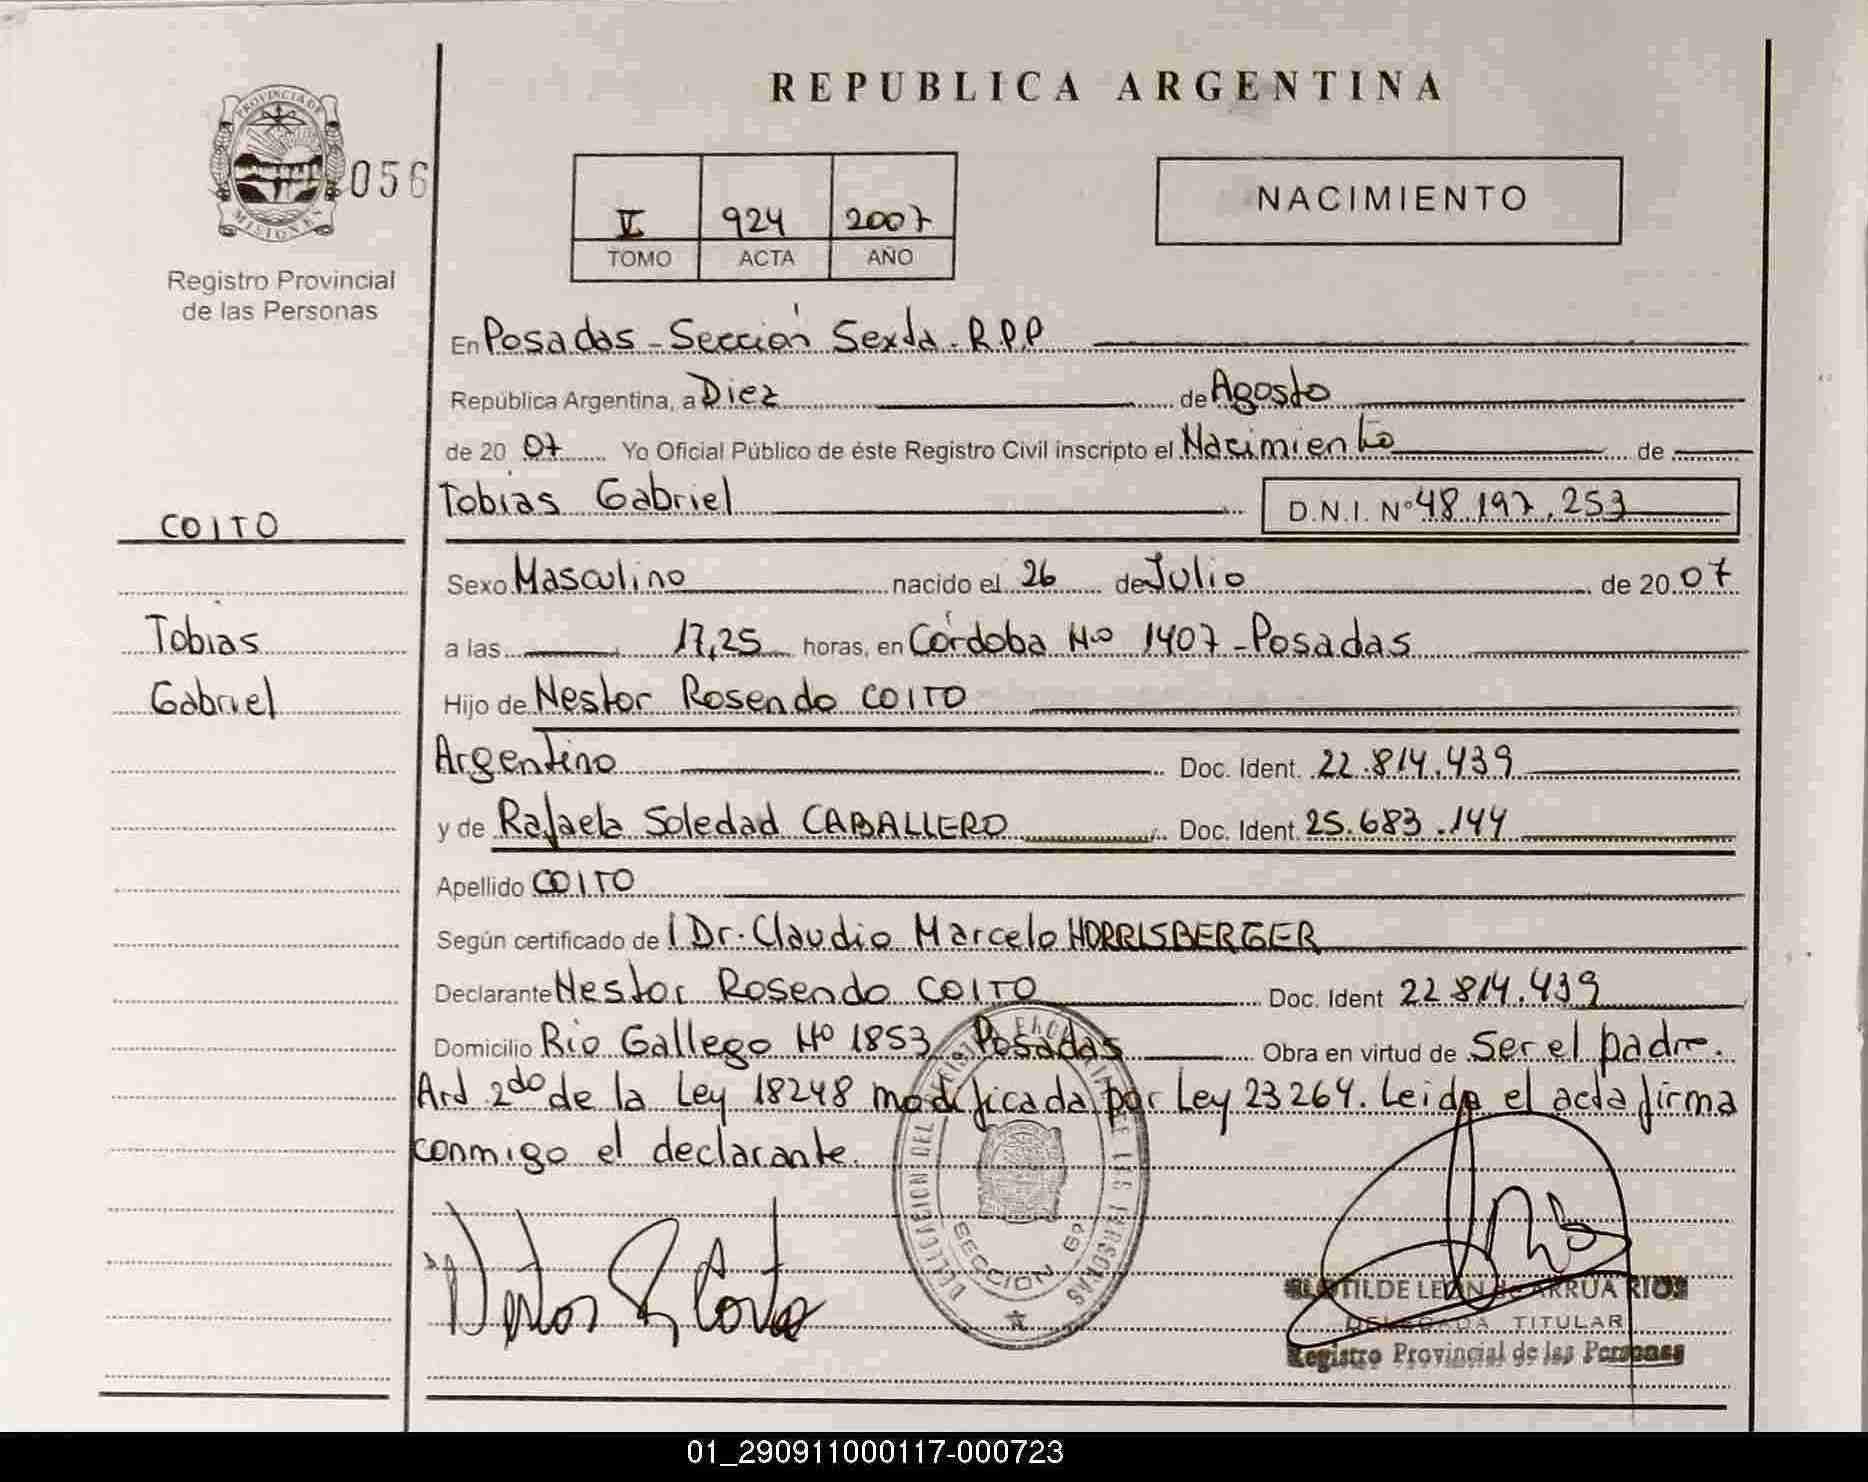 REPUBLICA ARGENTINA
PROVINCIA DE
MISIONES
056
Registro Provincial
de las Personas
V 924 2007
TOMO ACTA AÑO
NACIMIENTO
En Posadas - Sección Sexta. R.P.P
República Argentina, a Diez de Agosto
de 20 07 Yo Oficial Público de éste Registro Civil inscripto el Nacimiento de
Tobias Gabriel D.N.I. Nº 48.197.253
COITO
Sexo Masculino nacido el 26 de Julio de 20 07
Tobias
a las 17,25 horas, en Córdoba Nº 1407 - Posadas
Gabriel
Hijo de Nestor Rosendo COITO
Argentino Doc. Ident. 22.814.439
y de Rafaela Soledad CABALLERO Doc. Ident. 25.683.144
Apellido COITO
Según certificado de l Dr. Claudio Marcelo HORRISBERGER
Declarante Nestor Rosendo COITO Doc. Ident 22.814.439
Domicilio Rio Gallego Nº 1853 - Posadas Obra en virtud de Ser el padre.
Art 2do de la Ley 18248 modificada por Ley 23264. Leida el acta firma
conmigo el declarante.
DELEGACION DEL DE LAS PERSONAS
SECCION 6ª
CLOTILDE LEON de ARRUA RIOS
DELEGADA TITULAR
Registro Provincial de las Personas
01_290911000117-000723